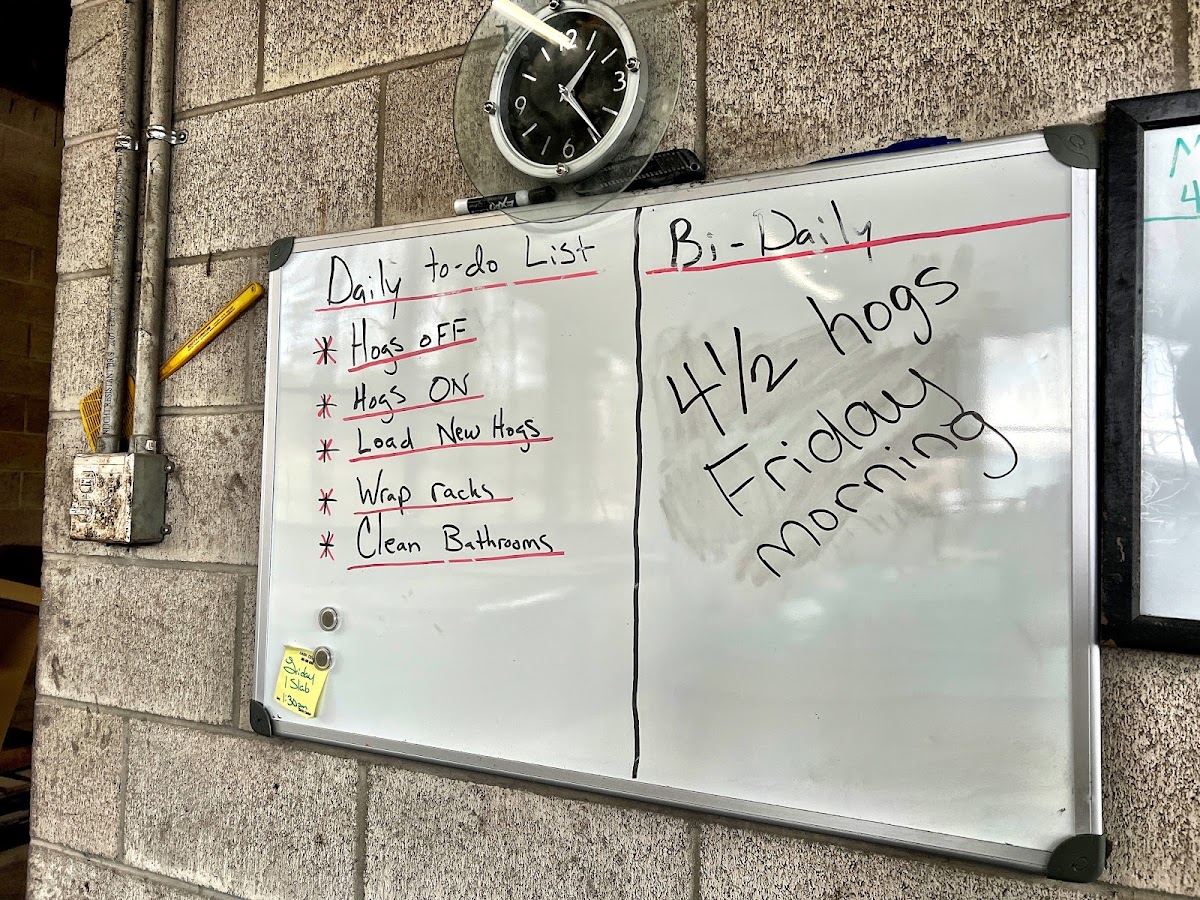 12
3
6
9
EXPO
Daily to-do List
* Hogs OFF
* Hogs ON
* Load New Hogs
* Wrap racks
* Clean Bathrooms
Friday
1 Slab
1:30
Bi-Daily
4 1/2 hogs
Friday
morning
M
4